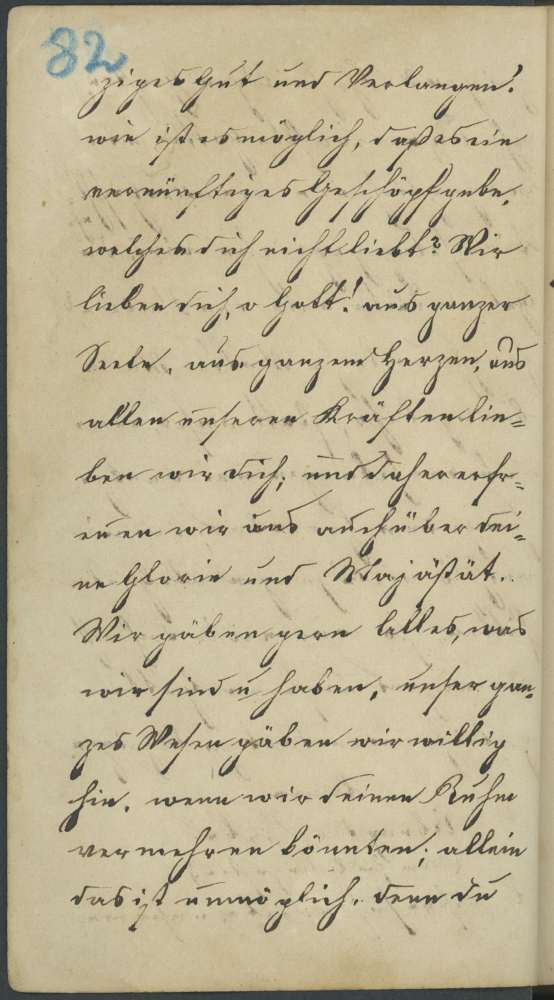 82
ziges Gut und Verlangen!
wie ist es möglich, daß es ein
vernünftiges Geschöpf gebe,
welches dich nicht liebt? Wir
lieben dich, o Gott! aus ganzer
Seele, aus ganzem Herzen, aus
allen unseren Kräften lie=
ben wir dich; und daher erfr=
euen wir uns auch über dei=
ne Glorie und Majästät.
Wir gäben gern alles, was
wir sind u haben, unser gan=
zes Wesen gäben wir willig
hin, wenn wir deinen Ruhm
vermehren könnten; allein
das ist unmöglich, denn du